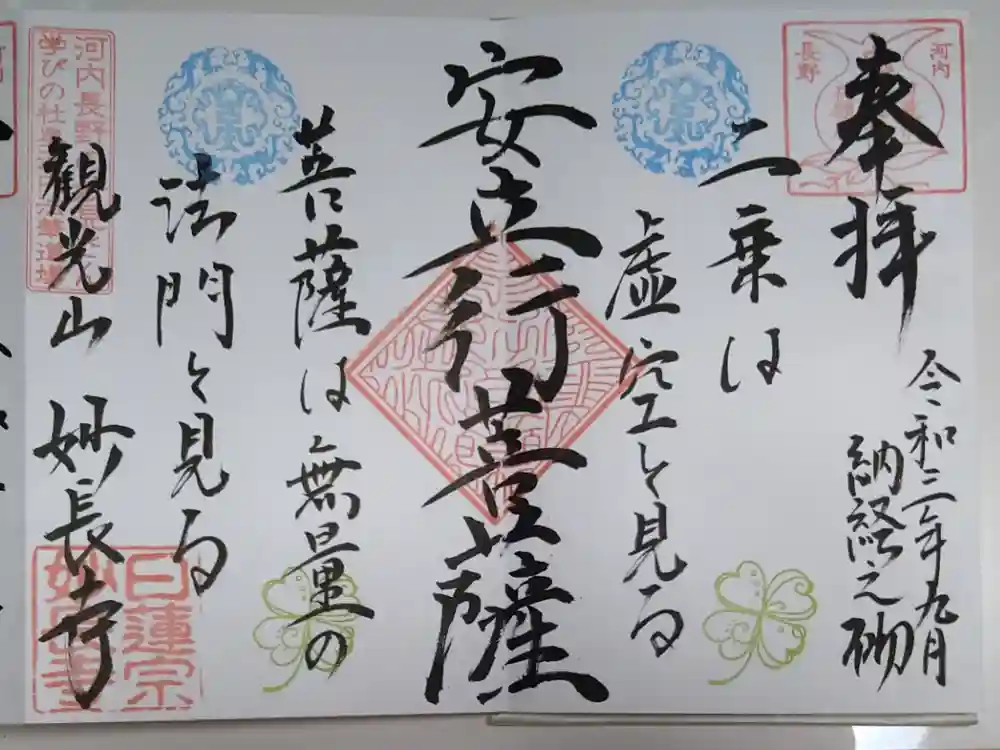 奉拝
河内
長野
令和三年九月
納経之砌
二乗は
虚空を見る
安立行菩薩
菩薩は無量の
法門を見る
観光山 妙長寺
河内長野
学びの社
日蓮宗
妙長寺